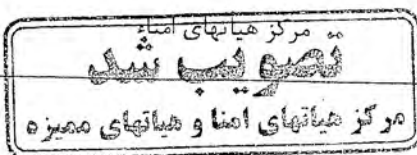 مرکز هیاتهای امناء
تصویب شد
مرکز هیاتهای امنا و هیاتهای ممیزه